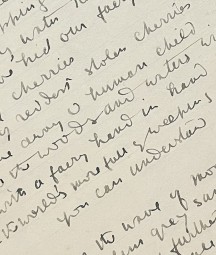 pping
y water
ve hid our faery
cherries
reddest stolen cherries
away O human child
the woods and waters wi
with a faery hand in hand
world's more full of weeping
you can understan
the wave of moo
dim grey san
furthe